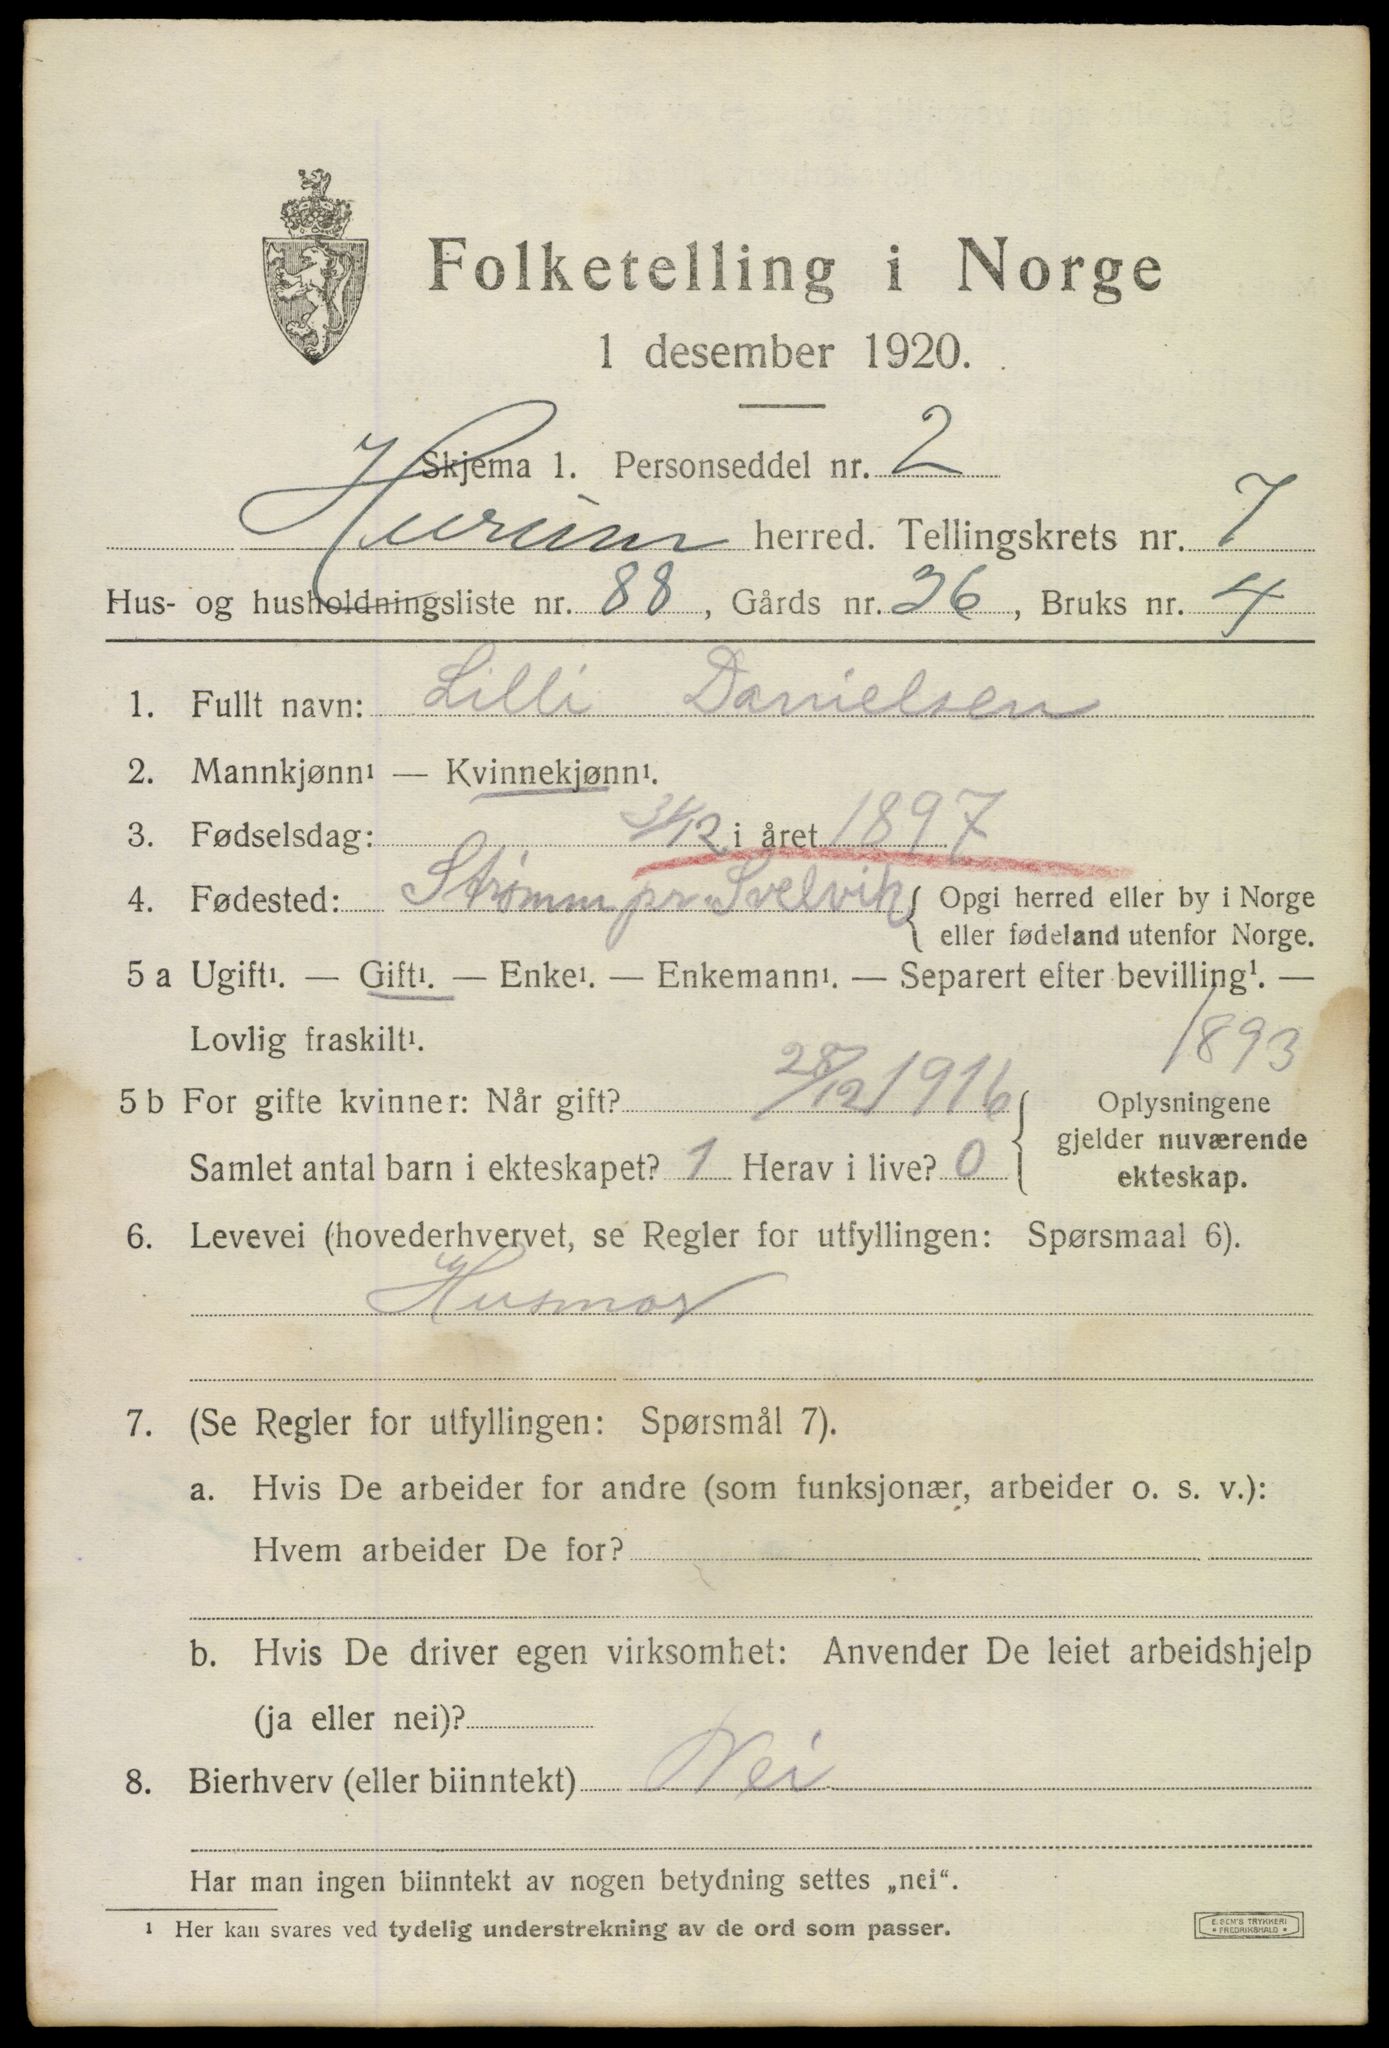 Folketelling i Norge
1 desember 1920.
Skjema 1. Personseddel nr. 2
Hurum herred. Tellingskrets nr. 7
Hus- og husholdningsliste nr. 88, Gårds nr. 36, Bruks nr. 4
1. Fullt navn: Lilli Danielsen
2. Mannkjønn¹ — Kvinnekjønn¹.
3. Fødselsdag: 31/12 i året 1897
4. Fødested: Strømm pr. Svelvik { Opgi herred eller by i Norge
eller fødeland utenfor Norge.
5 a Ugift¹. — Gift¹. — Enke¹. — Enkemann¹. — Separert efter bevilling¹. —
Lovlig fraskilt¹.
1893
5 b For gifte kvinner: Når gift? 28/12 1916
Samlet antal barn i ekteskapet? 1 Herav i live? 0
{ Oplysningene
gjelder nuværende
ekteskap.
6. Levevei (hovederhvervet, se Regler for utfyllingen: Spørsmaal 6).
Husmor
7. (Se Regler for utfyllingen: Spørsmål 7).
a. Hvis De arbeider for andre (som funksjonær, arbeider o. s. v.):
Hvem arbeider De for?
b. Hvis De driver egen virksomhet: Anvender De leiet arbeidshjelp
(ja eller nei)?
8. Bierhverv (eller biinntekt) Nei
Har man ingen biinntekt av nogen betydning settes „nei“.
¹ Her kan svares ved tydelig understrekning av de ord som passer.
E. SEM'S TRYKKERI
* FREDRIKSHALD *